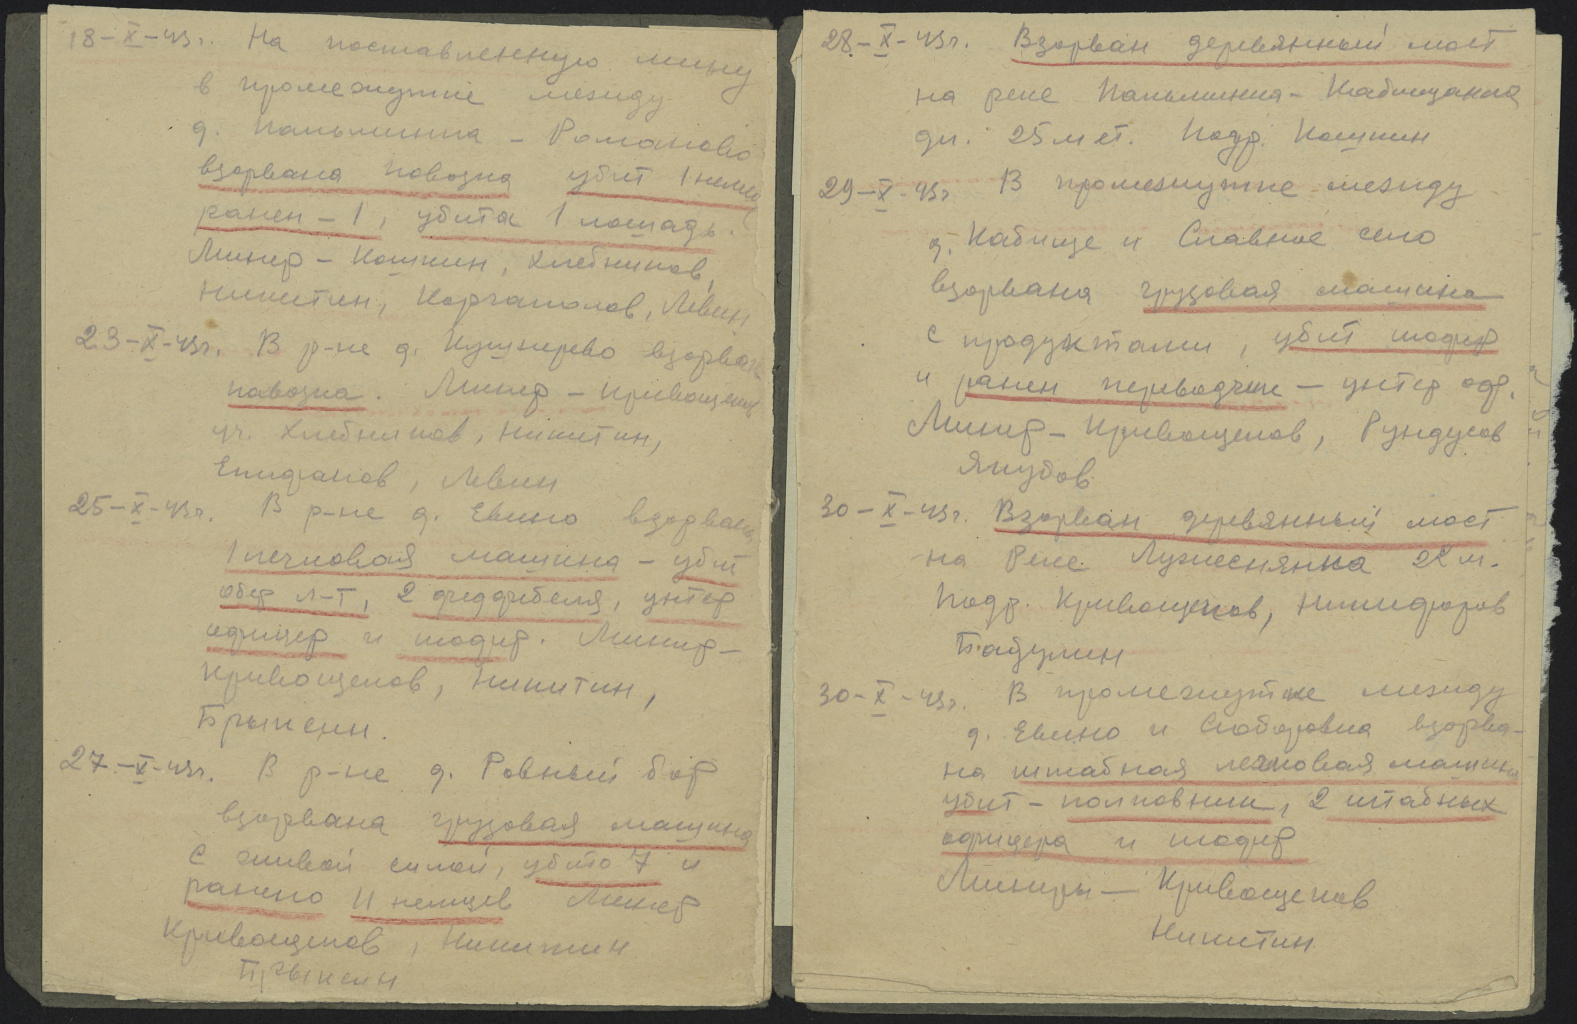 18-X-43г. На поставленную мину
в промежутке между
д. Пальминка - Романово
взорвана повозка убит 1 немец
ранен - 1, убита 1 лошадь.
Минер - Кошкин, Хлебников,
Никитин, Корчаполов, Левин
23-X-43г. В р-не д. Кушнерево взорван
повозка. Минер - Кривощеков
уч. Хлебников, Никитин,
Епифанов, Левин
25-X-43г. В р-не д. Евино взорвана
1 легковая машина - убит
обер л-т, 2 фельдфебеля, унтер
офицер и шофер. Минер -
Кривощеков, Никитин,
Брынсин.
27-X-43г. В р-не д. Ровный бор
взорвана грузовая машина
с живой силой, убито 7 и
ранено 11 немцев Минер
Кривощеков, Никитин
28-X-43г. Взорван деревянный мост
на реке Пальминка -
дл. 25 мет. Подр. Кошкин
29-X-43г В промежутке между
д. Кабище и Славное село
взорвана грузовая машина
с продуктами, убит шофер
и ранен переводчик - унтер оф.
Минер - Кривощеков, Рундусов
Якубов
30-X-43г. Взорван деревянный мост
на реке Лужеснянка 22 м.
Подр. Кривощеков, Никифоров
Бабулин
30-X-43г. В промежутке между
д. Евино и взорва-
на штабная легковая машина
убит - полковник, 2 штабных
офицера и шофер
Минеры - Кривощеков
Никитин